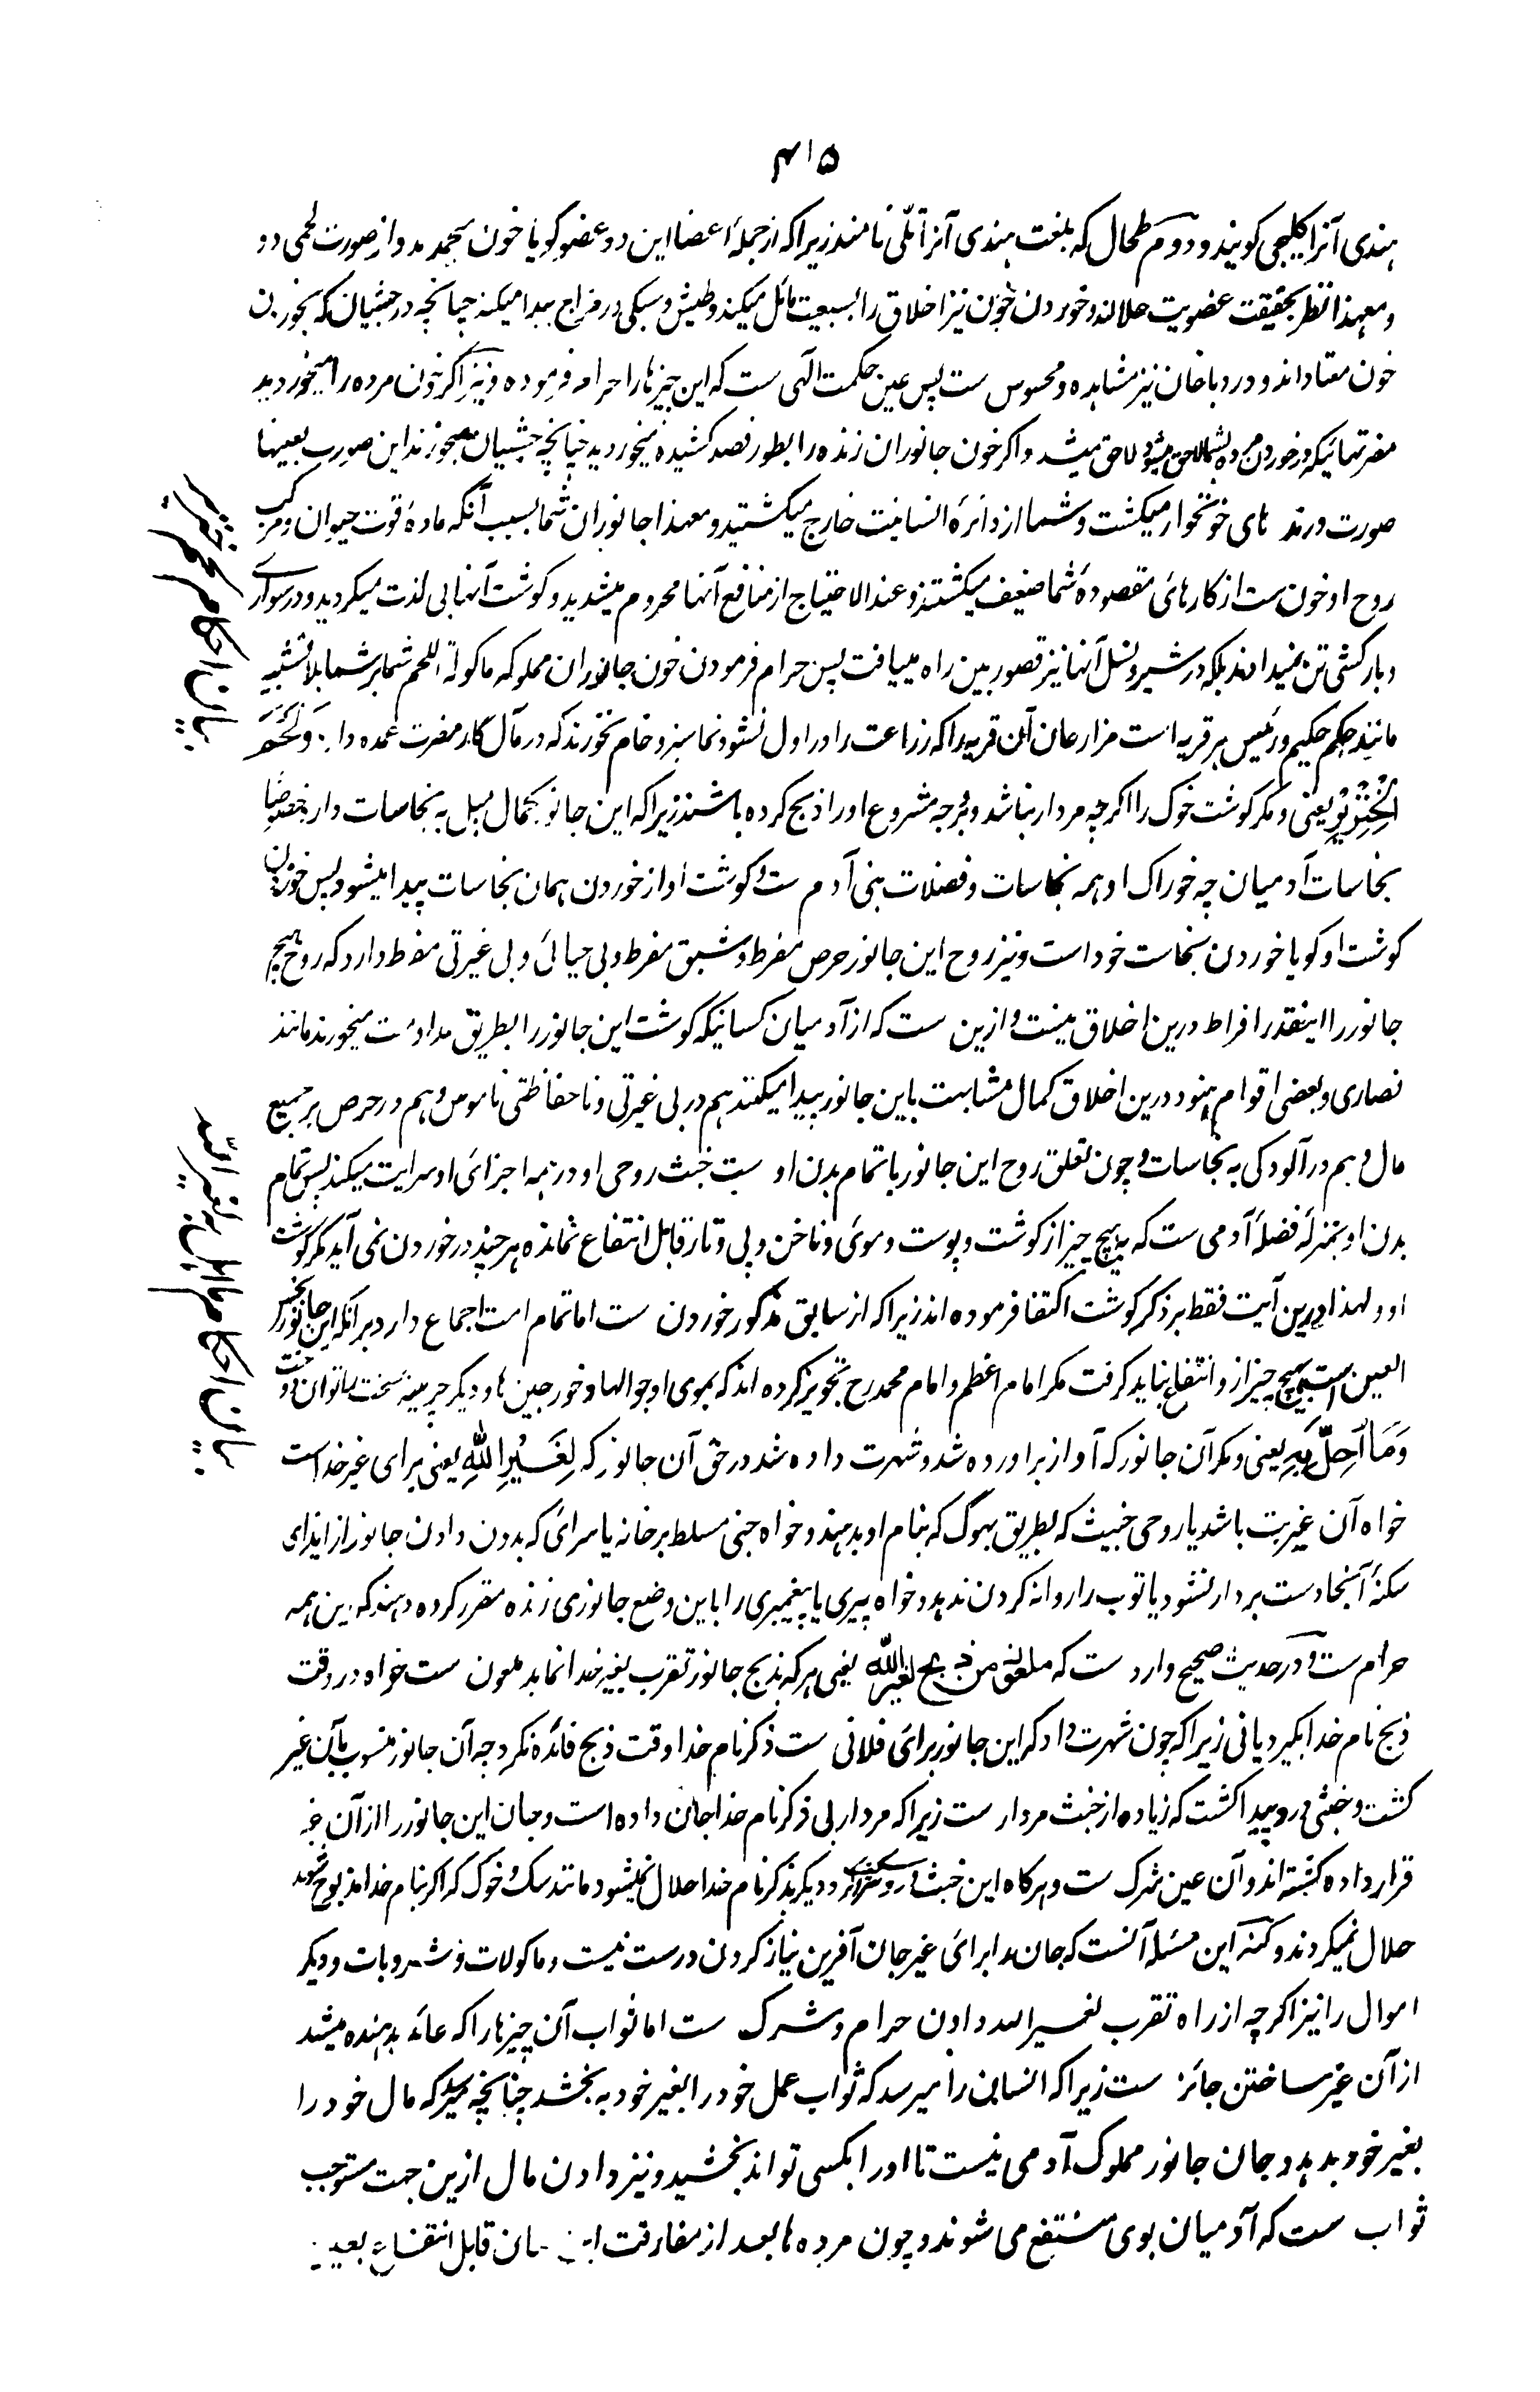 ۴۱۵
ہندی آنرا کلیجی کویند و دوم طحال که بلغت ہندی آنرا تلّی نامند زیرا که از جملۂ اعضا این دو عضو گویا خون منجمد اند و از صورت لحمی دور
و معہذا نظر بحقیقت عضویت حلال اند و خوردن خون نیز اخلاق را بسبعیت مائل میکند و طیش و سبکی در مزاج پیدا میکند چنانچه در حبشیان که بخوردن
خون معتاد اند و در دباغان نیز مشاہده و محسوس ست پس عین حکمت الٰہی ست که این چیزہا را حرام فرموده و نیز اگر خون مرده را میخوردید
مضرتہائیکه در خوردن مرده بشما لاحق میشود لاحق میشد و اکر خون جانوران زنده را بطور فصد کشیده میخوردید چنانچه حبشیان میخورند این صورت بعینها
صورت درنده ہای خونخوار میکشت و شما از دائرۂ انسانیت خارج میکشتید و معہذا جانوران شما بسبب آنکه مادۂ قوت حیوان و مرکب
روح او خون ست از کارہای مقصودۂ شما ضعیف میکشتند و عند الاحتیاج از منافع آنہا محروم میشدید و کوشت آنہا بی لذت میکردید و در سواری
و بارکشی تن نمیدادند بلکه در شیر و نسل آنہا نیز قصور بین راه مییافت پس حرام فرمودن خون جانوران مملوکه ماکولة اللحم شما بر شما بلا تشبیه
مانند حکم حکیم و رئیس ہر قریه است مزارعان آن قریه را که زراعت را در اول نشو و نما سبز و خام نخورند که در مآل کار مضرت عمده دارد وَلَحْمَ
الْخِنْزِيْرِ یعنی و مکر کوشت خوک را اکرچه مردار نباشد و بوجه مشروع او را ذبح کرده باشند زیرا که این جانور بکمال میل به نجاسات دارد خصوصاً
نجاسات آدمیان چه خوراک او همه نجاسات و فضلات بنی آدم ست و کوشت او از خوردن ہمان نجاسات پیدا میشود پس خوردن
کوشت او کویا خوردن نجاست خود است و نیز روح این جانور حرص مفرط و شبق مفرط و بی حیائی و بی غیرتی مفرط دارد که روح ہیچ
جانور را اینقدر افراط درین اخلاق نیست و ازین ست که از آدمیان کسانیکه کوشت این جانور را بطریق مداومت میخورند مانند
نصاری و بعضی اقوام ہنود درین اخلاق کمال مشابہت باین جانور پیدا میکنند ہم در بی غیرتی و ناحفاظتی ناموس و ہم در حرص بر جمیع
مال و ہم در آلودکی به نجاسات و چون تعلق روح این جانور با تمام بدن او ست خبث روحی او در ہمه اجزای او سرایت میکند پس تمام
بدن او بمنزلۂ فضلۂ آدمی ست که ہیچ چیز از کوشت و پوست و موی و ناخن و پی و تار قابل انتفاع نمانده ہر چند در خوردن نمی آید مکر کوشت
او و لہذا درین آیت فقط بر ذکر کوشت اکتفا فرموده اند زیرا که از سابق مذکور خوردن ست اما تمام امت اجماع دارد بر آنکه این جانور نجس
العین است ہیچ چیز ازو انتفاع نباید کرفت مکر امام اعظم و امام محمد رح تجویز کرده اند که بموی او جوالها و خورجین ہا و دیکر چرمینه سخت را توان دوخت
وَمَا اُهِلَّ بِهِ یعنی و مکر آن جانور که آواز برآورده شد و شہرت داده شد در حق آن جانور که لِغَيْرِ اللّٰهِ یعنی برای غیر خدا است
خواه آن غیر بت باشد یا روحی خبیث که بطریق بهوگ که بنام او بدہند و خواه جنی مسلط بر خانه یا سرائی که بدون دادن جانور از ایذای
سکنۂ آنجا دست بردار نشود یا توپ را روانه کردن ندہد و خواه پیری یا پیغمبری را باین وضع جانوری زنده مقرر کرده دہند که این ہمه
حرام ست و در حدیث صحیح وارد ست که ملعون من ذبح لغیر اللّٰه یعنی ہر که بذبح جانور تقرب بغیر خدا نماید ملعون ست خواه در وقت
ذبح نام خدا بکیرد یا نی زیرا که چون شہرت داد که این جانور برای فلانی ست ذکر نام خدا وقت ذبح فائده نکرد چه آن جانور منسوب بآن غیر
کشت و خبثی درو پیدا کشت که زیاده از خبث مردار ست زیرا که مردار بی ذکر نام خدا جان داده است و جان این جانور را از آن غیر
قرار داده کشته اند و آن عین شرک ست و ہرکاه این خبث درو سرایت کرد دیکر بذکر نام خدا حلال نمیشود مانند سک و خوک که اکر بنام خدا مذبوح شوند
حلال نمیکردند و کنه این مسئله آنست که جان را برای غیر جان آفرین نیاز کردن درست نیست و ماکولات و مشروبات و دیکر
اموال را نیز اکرچه از راه تقرب لغیر الله دادن حرام و شرک ست اما ثواب آن چیزہا را که عائد بدہنده میشد
از آن غیر ساختن جائز ست زیرا که انسان را میرسد که ثواب عمل خود را بغیر خود به بخشد چنانچه میرسد که مال خود را
بغیر خود بدہد و جان جانور مملوک آدمی نیست تا او را بکسی تواند بخشید و نیز دادن مال ازین جہت مستوجب
ثواب ست که آدمیان بوی منتفع می شوند و چون مرده ہا بعد از مفارقت این جہان قابل انتفاع بعین
بیان احکام لحم خنزیر
بیان احکام ما اہل به لغیر اللّٰه